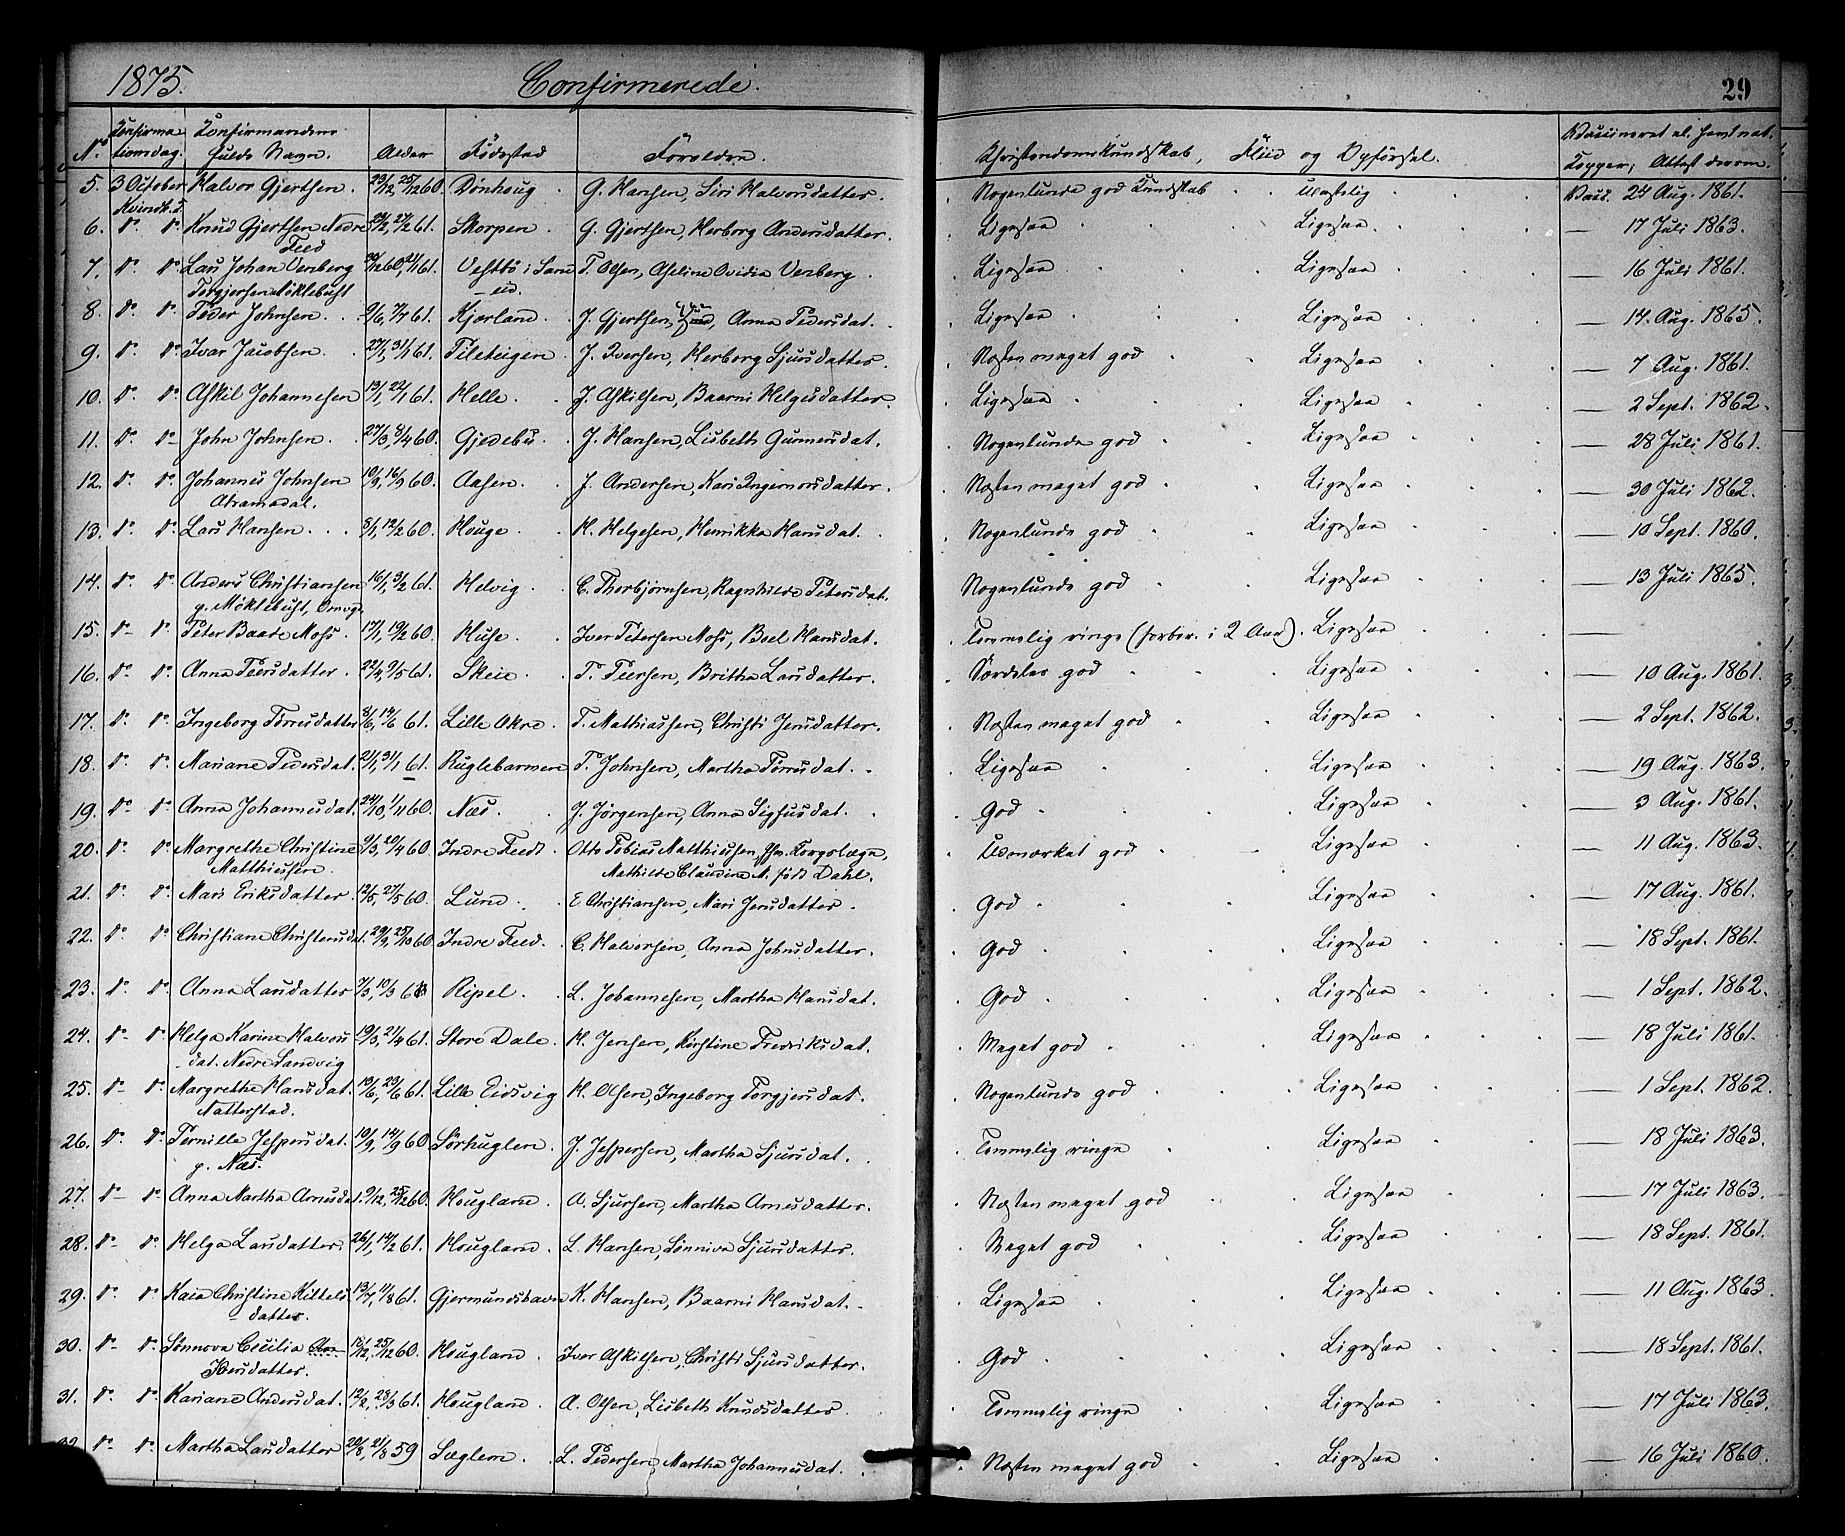 1875. Confirmerede. 29
No Confirmationsdag. Konfirmandens fulde Navn. Alder Fødested Forældre. Christendomskundskab, Flid og Opførsel. Vaccineret el. havt nat. Kopper; Attest derom.
5. 3 October Halvor Gjertsen. 23/12, 25/12 60. Dönhoug G. Hansen, Siri Halvorsdatter. Nogenlunde god Kundskab Vacc. 24 Aug. 1861.
Kvindh. S.
6. do do Knud Gjertsen Nedre 22/2, 27/2 61. Skorpen G. Gjertsen, Herborg Andersdatter. Ligesaa Ligesaa — 17 Juli 1863.
Feed
7. do do Lars Johan Venberg T. Olsen, Aseline Ovidia Venberg. Ligesaa Ligesaa — 16 Juli 1861.
Torgjersen Møklebust
8. do do Peder Johnsen. 9/6, 7/4 61. Kjærland. J. Gjertsen, Anna Pedersdat. Ligesaa Ligesaa — 14 Aug. 1865.
9. do do Ivar Jacobsen. 27/1, 31/1 61. Pileteigen J. Iversen, Herborg Sjursdatter. Næsten meget god Ligesaa — 7 Aug. 1861.
10. do do Askil Johannesen 13/1, 22/1 61. Helle. J. Askilsen, Baarni Helgesdatter. Ligesaa Ligesaa — 2 Sept. 1862.
11. do do John Johnsen. 27/3, 8/4 60. Gjedebö. J. Hansen, Lisbeth Gunnersdat. Nogenlunde god Ligesaa — 28 Juli 1861.
12. do do Johannes Johnsen 10/9, 16/9 60. Aasen. J. Andersen, Kari Ingemorsdatter. Næsten meget god Ligesaa — 30 Juli 1862.
Abramsdal.
13. do do Lars Hansen. 8/1, 12/2 60. Houge H. Helgesen, Henrikka Hansdat. Nogenlunde god Ligesaa — 10 Sept. 1860.
14. do do Anders Christiansen 16/1, 3/2 61. Helvig. C. Thorbjörnsen, Ragnhilde Petersdat. Nogenlunde god Ligesaa — 13 Juli 1865.
p. Møklebust, Omvgr.
15. do do Peter Baade Moss. 17/1, 19/2 60. Huse. Iver Petersen Moss, Boel Hansdat. Temmelig ringe (forber. i 2 Aar). Ligesaa —
16. do do Anna Peersdatter. 22/4, 9/5 61. Skeie. P. Peersen, Britha Larsdatter. Særdeles god Ligesaa — 10 Aug. 1861.
17. do do Ingeborg Torresdatter 8/6, 14/6 61. Lille Okre. T. Mathiassen, Christi Jensdatter. Næsten meget god Ligesaa — 2 Sept. 1862.
18. do do Mariane Pedersdat. 21/1, 31/1 61. Ruglebarmen P. Johnsen, Martha Torresdat. Ligesaa Ligesaa — 19 Aug. 1863.
19. do do Anna Johannesdat. 24/10, 1/11 60. Næs. J. Jörgensen, Anna Sigfusdat. God Ligesaa — 3 Aug. 1861.
20. do do Margrethe Christine 9/3, 20/4 60. Indre Feed. Otto Tobias Matthiesen, Korpslæge, Udmærket god Ligesaa — 11 Aug. 1863.
Matthiesen. Mathilde Claudine M. født Dahl.
21. do do Mari Eriksdatter. 12/5, 27/5 60. Lund. E Christiansen, Mari Jensdatter. God Ligesaa — 17 Aug. 1861.
22. do do Christiane Christensdat. 29/9, 25/10 60 Indre Feed. C. Halvorsen, Anna Johnsdatter. God Ligesaa — 18 Sept. 1861.
23. do do Anna Larsdatter 7/3, 10/3 61. Ripel. L. Johannesen, Martha Hansdat. God Ligesaa — 1 Sept. 1862.
24. do do Helga Karine Halvors 19/3, 21/4 61. Store Dale. H. Jensen, Kirstine Fredriksdat. Meget god Ligesaa — 18 Juli 1861.
dat. Nedre Sandvig
25. do do Margrethe Hansdat. 13/6, 23/6 61. Lille Eidsvig H. Olsen, Ingeborg Torgjersdat. Nogenlunde god Ligesaa — 1 Sept. 1862.
Natterstad.
26. do do Pernille Jespersdat. 10/9, 14/9 60 Sörhuglen. J. Jespersen, Martha Sjursdat. Temmelig ringe Ligesaa — 18 Juli 1863.
p. Næs.
27. do do Anna Martha Arnesdat. 9/12, 25/12 60. Hougland. A. Sjursen, Martha Arnesdatter. Næsten meget god Ligesaa — 17 Juli 1863.
28. do do Helga Larsdatter. 26/1, 14/2 61. Hougland. L. Hansen, Sönniva Sjursdatter. Meget god Ligesaa — 18 Sept. 1861.
29. do do Kaia Christine Kittels 13/7, 11/8 61. Gjermundshavn K. Hansen, Baarni Hansdat. Ligesaa Ligesaa — 11 Aug. 1863.
datter.
30. do do Sönnova Cecilia 18/12, 25/12 60. Hougland. Iver Askilsen, Christi Sjursdatter. God Ligesaa — 18 Sept. 1861.
Iversdatter.
31. do do Kariane Andersdat. 12/2, 28/3 61. Hougland. A. Olsen, Lisbeth Knudsdatter. Temmelig ringe Ligesaa — 17 Juli 1863.
32. do do Martha Larsdatter 20/8, 21/8 59 Sæglem. L. Pedersen, Martha Johannesdat. Næsten meget god Ligesaa — 16 Juli 1860.